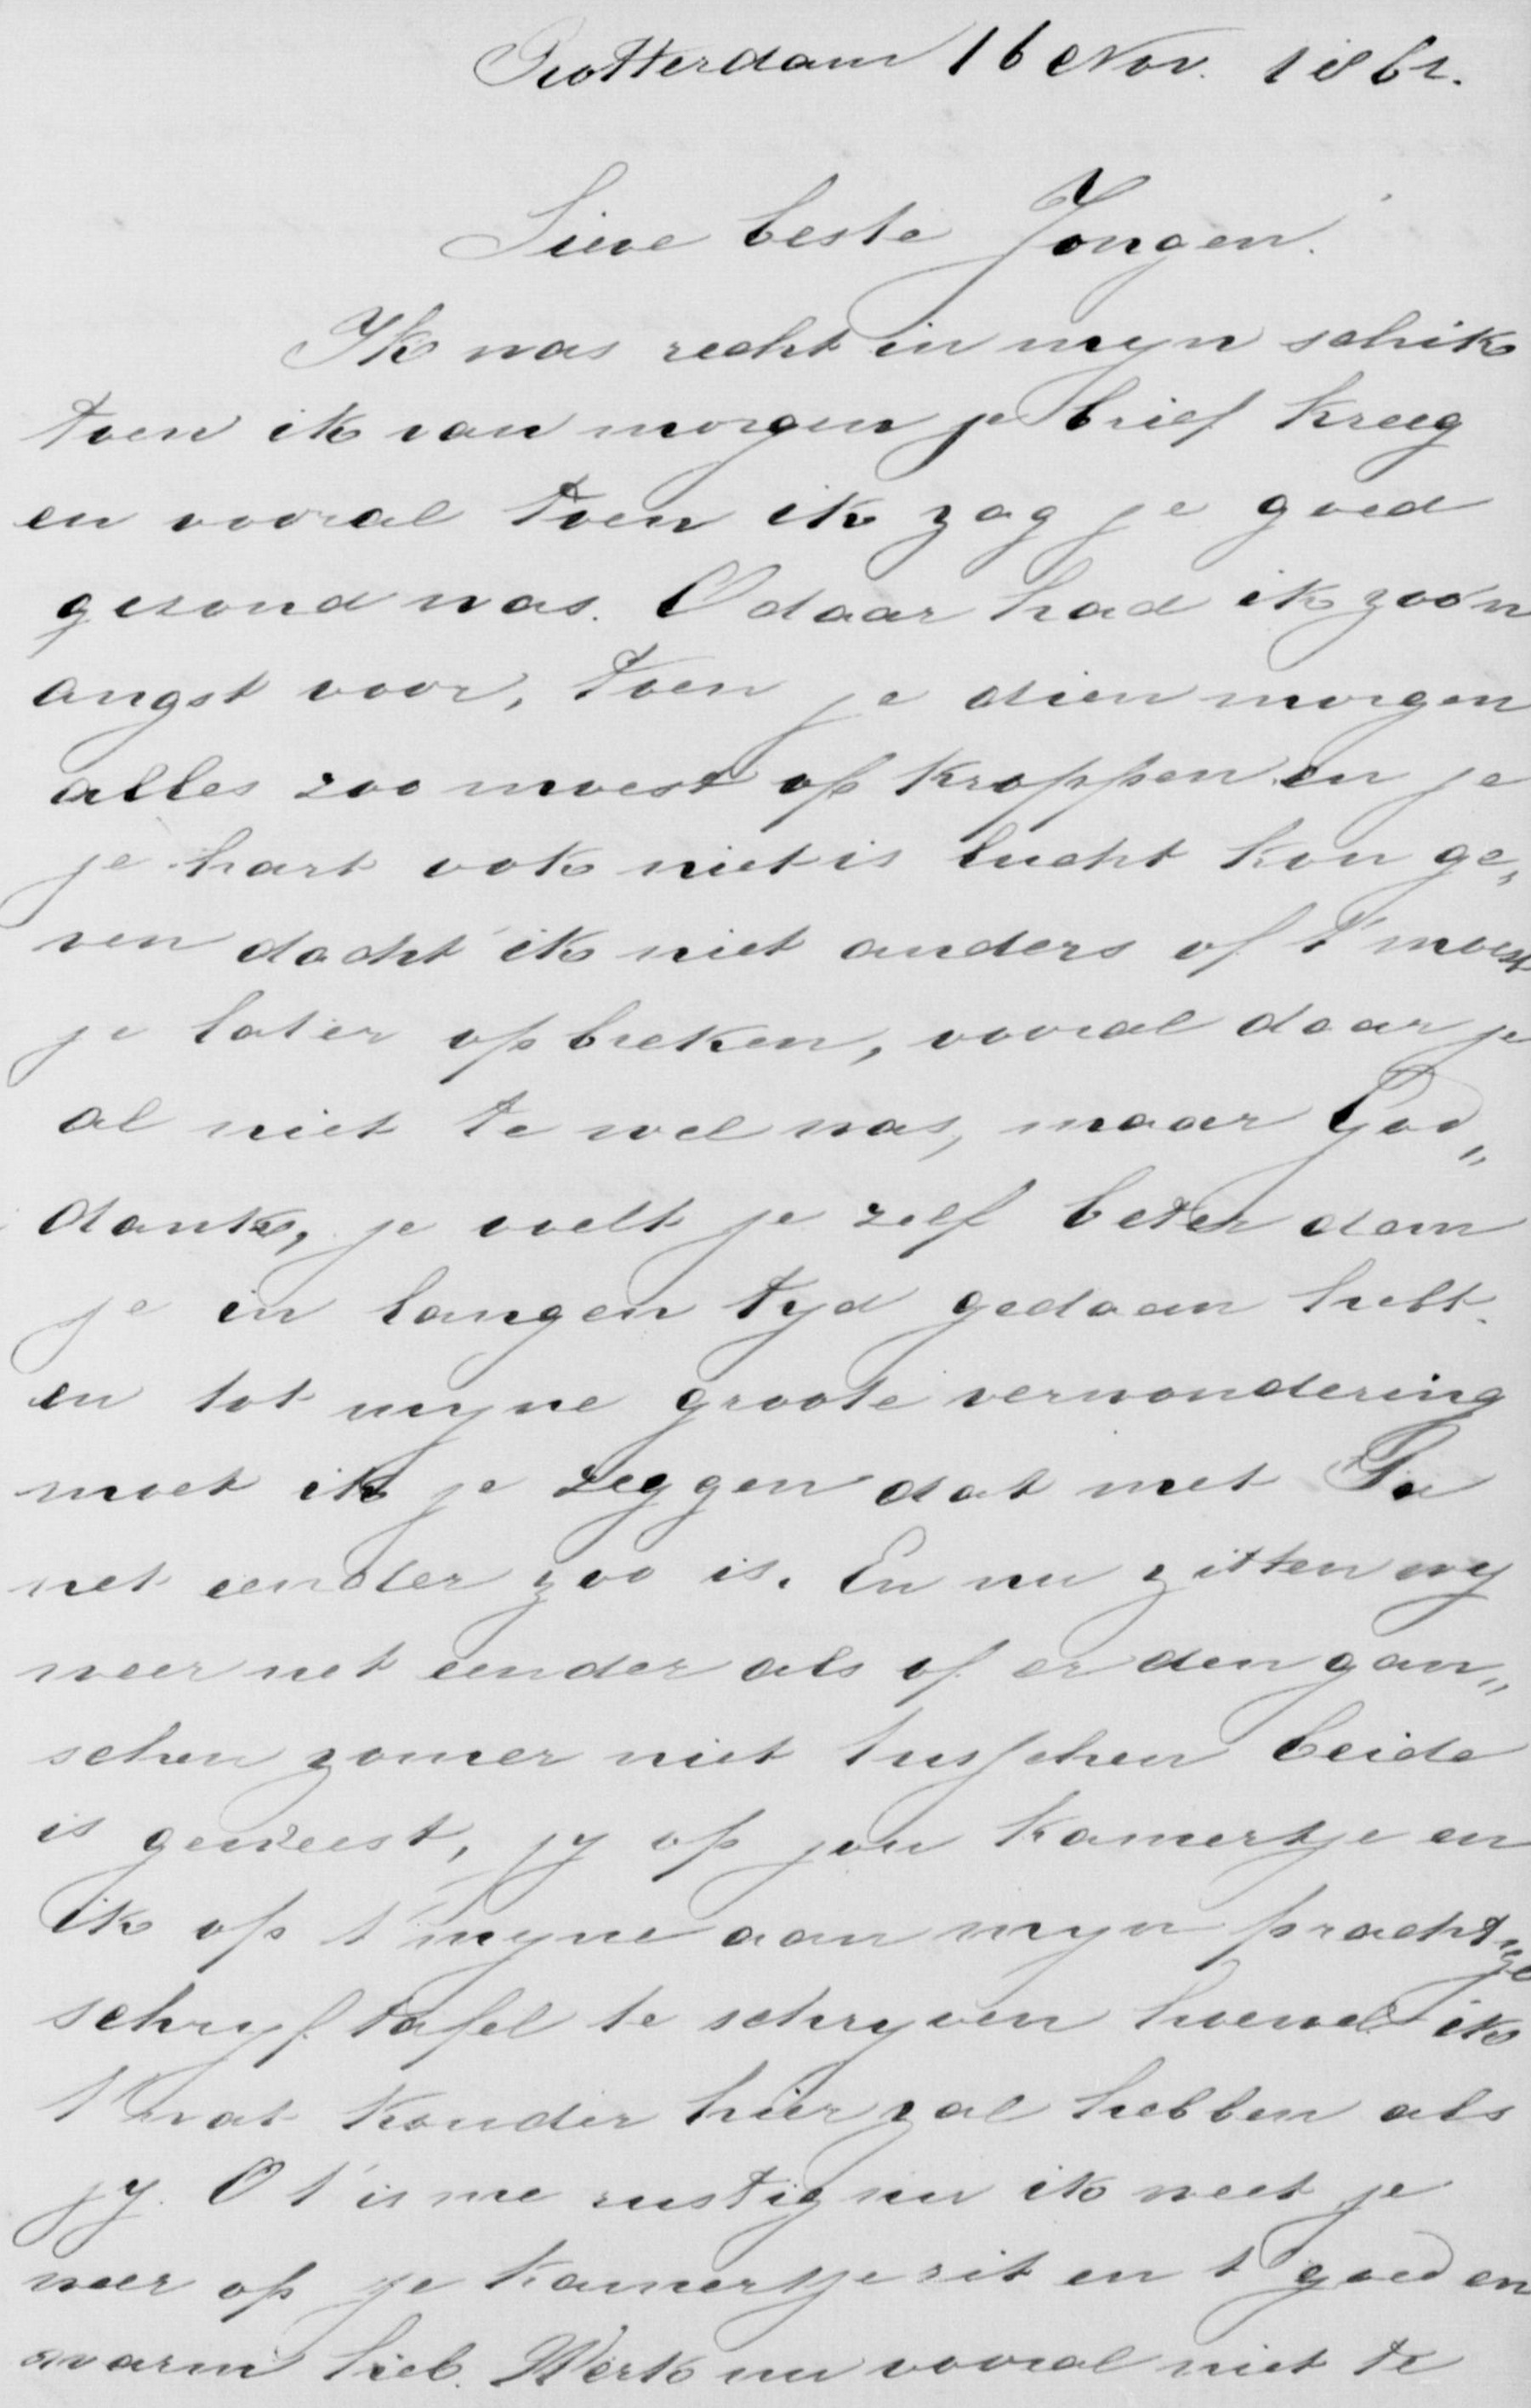 Rotterdam 16 Nov. 1861.
Lieve beste Jongen.
Ik was recht in myn schik
toen ik van morgen je brief kreeg
en vooral toen ik zag je goed
gezond was. O daar had ik zoo'n
angst voor, toen je dien morgen
alles zoo moest op kroppen en je
je hart ook niet is lucht kon ge„
ven dacht ik niet anders of t' moest
je later opbreken, vooral daar je
al niet te wel was, maar God„
dank, je voelt je zelf beter dan
je in langen tyd gedaan hebt.
en tot myne groote verwondering
moet ik je zeggen dat met Pa
net eender zoo is. En nu zitten wy
weer net eender als of er den gan„
schen zomer niet tusschen beide
is geweest, jy op jou kamertje en
ik op t' myne aan myn prachtige
schryf tafel te schryven hoewel ik
t' wat kouder hier zal hebben als
jy. O t' is me rustig nu ik weet je
weer op je kamertje zit en t' goed en
warm heb. Werk nu vooral niet te